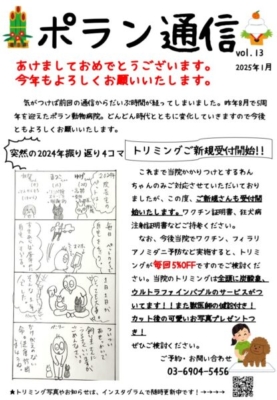 ポラン通信
vol. 13
2025年1月
あけましておめでとうございます。
今年もよろしくお願いいたします。
気がつけば前回の通信からだいぶ時間が経ってしまいました。昨年8月で5周
年を迎えたポラン動物病院。どんどん時代とともに変化していきますので今後
ともよろしくお願いいたします。
突然の2024年振り返り4コマ
トリミングご新規受付開始!!
これまで当院かかりつけとするわん
ちゃんのみご対応させていただいており
ましたが、この度、ご新規さんも受付開
始いたします。ワクチン証明書、狂犬病
注射証明書などご持参ください。
なお、今後当院でワクチン、フィラリ
アノミダニ予防など実施すると、トリミ
ングが毎回5%OFFですのでご検討くだ
さい。当院のトリミングは全頭に炭酸泉、
ウルトラファインバブルのサービスがつ
いてます!!また獣医師の健診付き!
カット後の可愛いお写真プレゼントつ
き!
ぜひご検討ください。
ご予約・お問い合わせ
03-6904-5456
★トリミング写真やお知らせは、インスタグラムで随時更新中です!→→→→